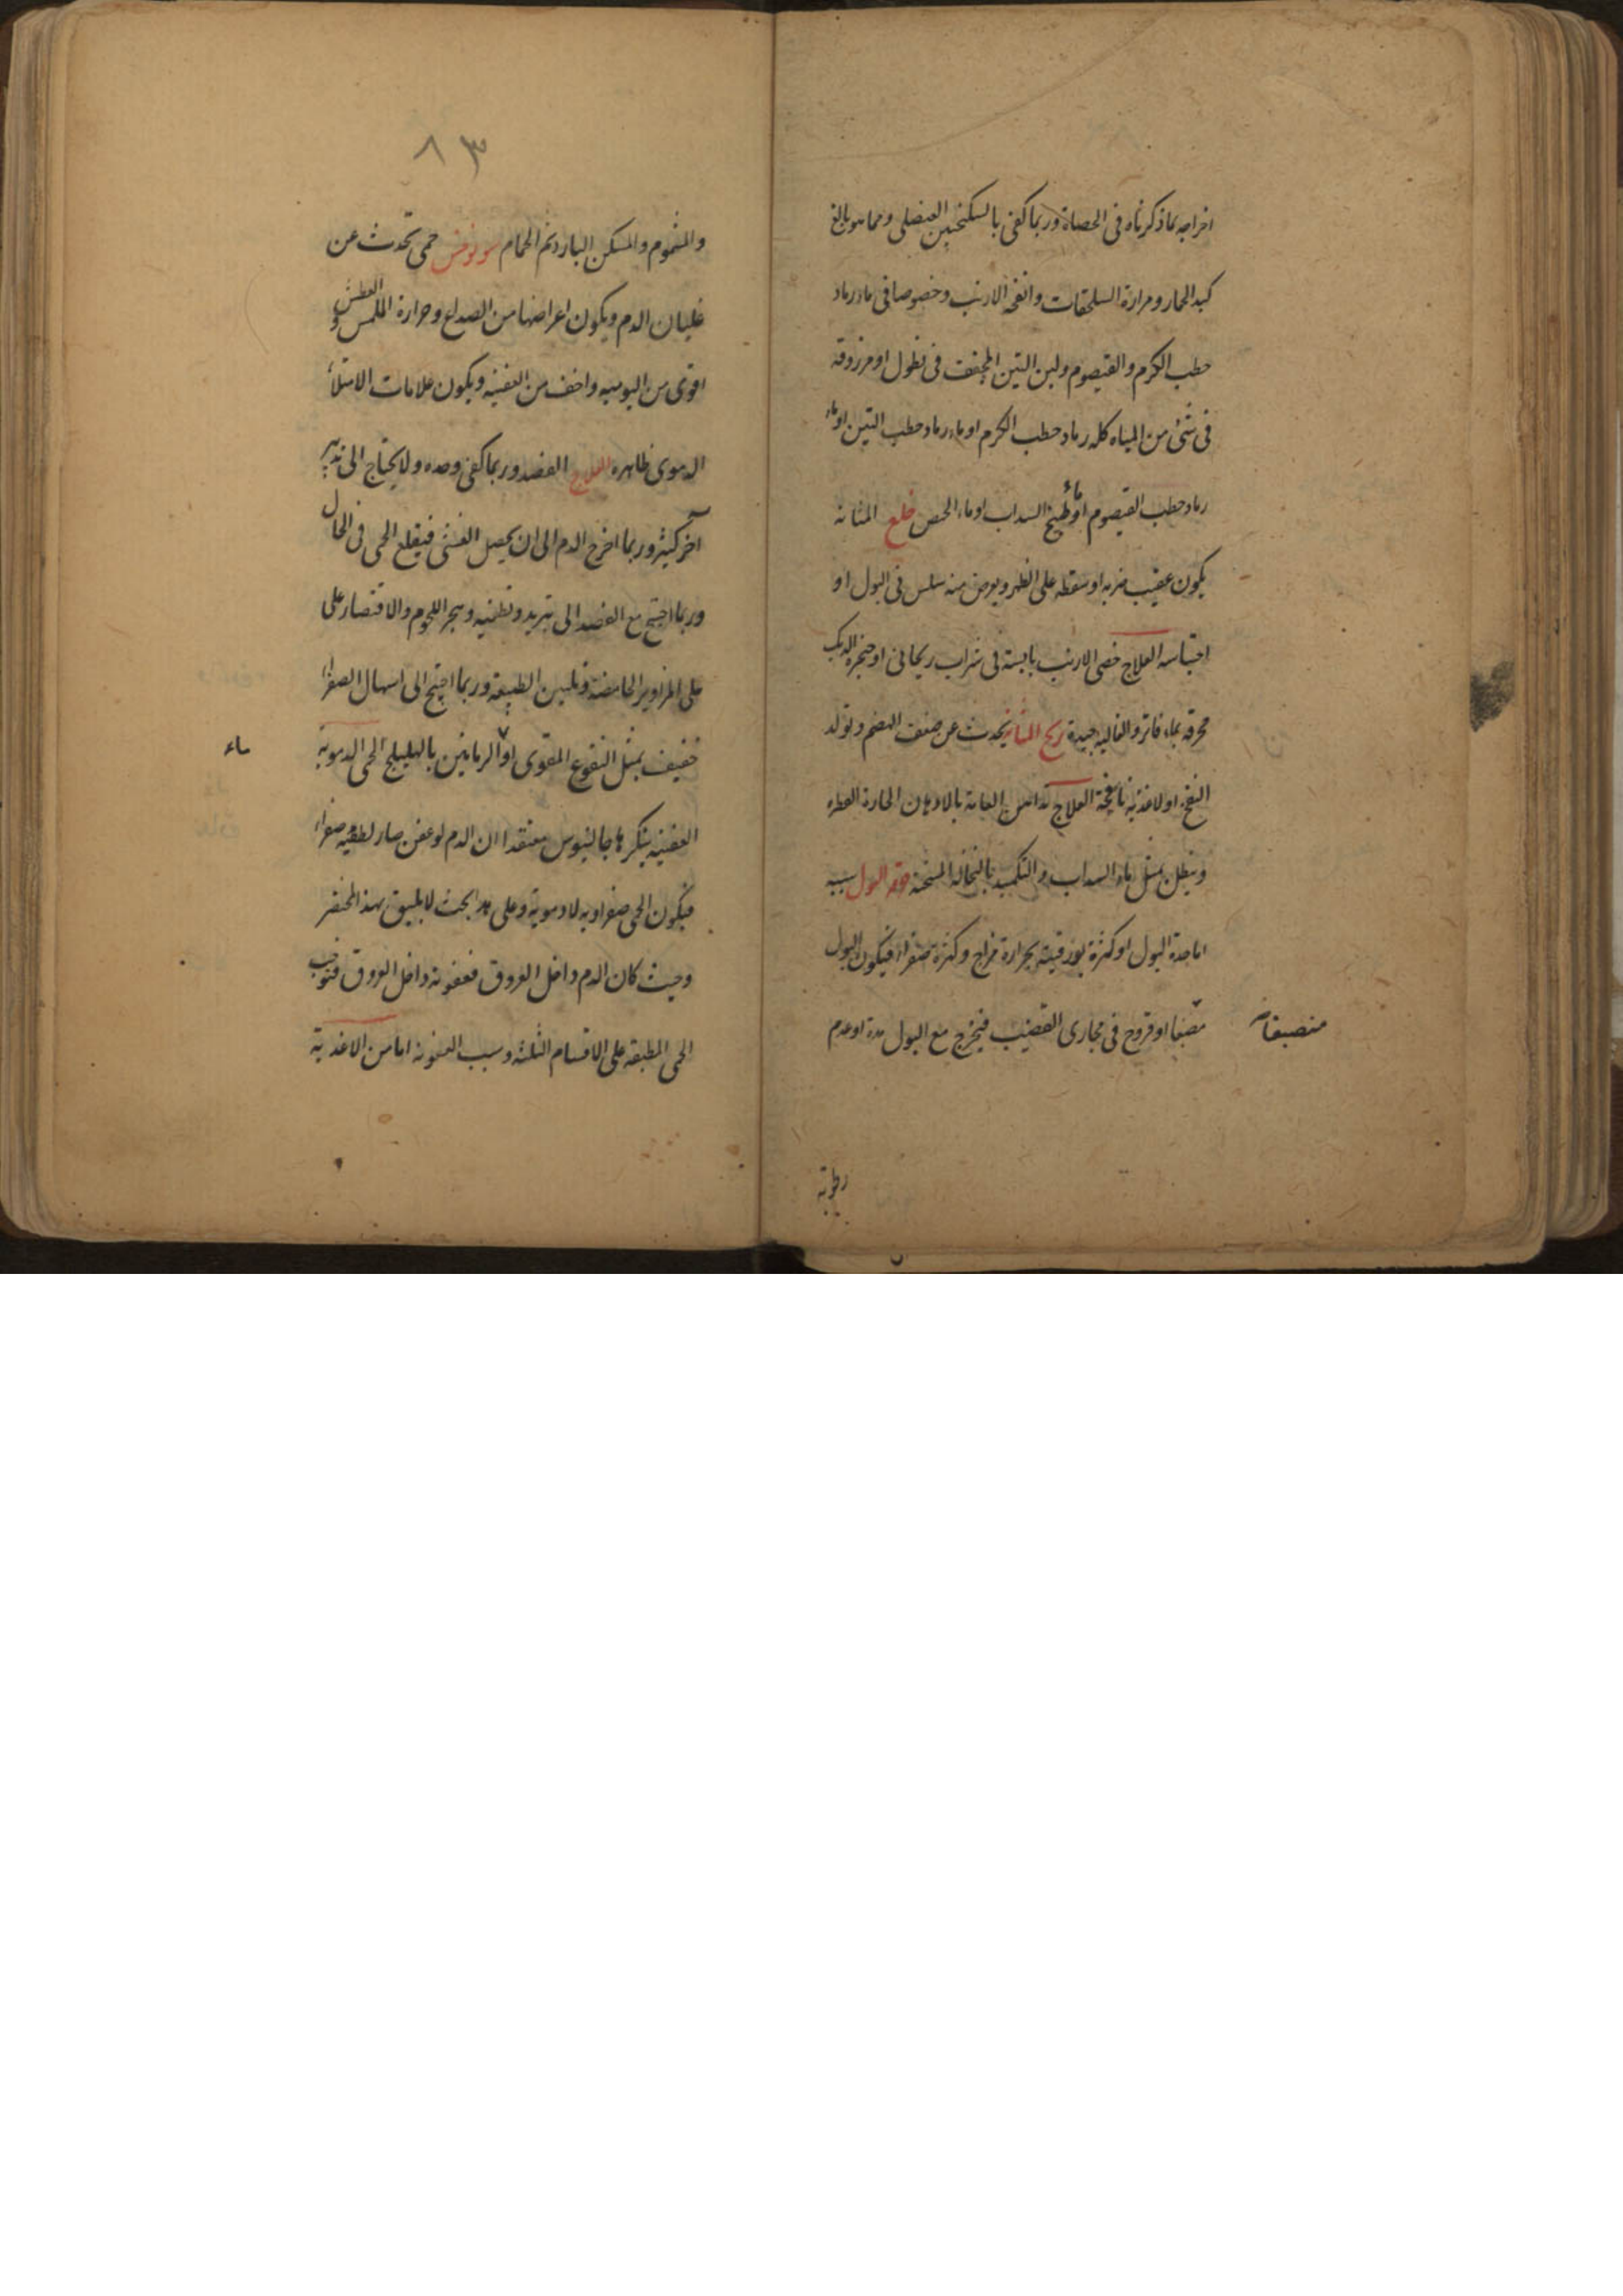 اخراجه بما ذكرناه فى الحصاة وربما كفى بالسكنجبين العنصلى ومما هو بالغ
كبد الحمار ومرارة السلحفات وانفحه الارنب وخصوصا فى ماء رماد
حطب الكرم والقيصوم ولبن التين المجفف فى نطول او مزروقه
فى شئ من المياه كله رماد حطب الكرم او ماء رماد حطب التين او ماء
رماد حطب القيصوم او ماء طبيخ السداب او ماء الحمص خلع المثانه
يكون عقيب ضربه او سقطه على الظهر ويعرض منه سلس فى البول او
احتباسه العلاج خصى الارنب يابسة فى شراب ريحانى او حنجره الديك
محرقه بماء فاتر والغاليه جيدة ريح المثانه يحدث عن ضعف الهضم وتولد
النفخ او لاغذيه نافخة العلاج تدهن العانه بالادهان الحارة العطره
وينطل بمثل ماء السداب والتكميد بالنخاله المسخنة حرقه البول سببه
اما حدة البول او كثرة بورقيته بحرارة مزاج وكثرة صفراء فيكون البول
منصبغا او قروح فى مجارى القضيب فيخرج مع البول مدة او دم
منصبغا
رطوبة
٨٣
والمشموم والمسكن البارد ثم الحمام سونوخس حمى تحدث عن
غليان الدم ويكون اعراضها من الصداع وحرارة الملمس والعطش
اقوى من اليوميه واخف من العفنيه ويكون علامات الامتلاء
الدموى ظاهره العلاج الفصد وربما كفى وحده ولا يحتاج الى تدبير
آخر كثير وربما اخرج الدم الى ان يحصل الغشى فيقلع الحمى فى الحال
وربما احتيج مع الفصد الى تبريد وتطفيه وهجر اللحوم والاقتصار على
على المزاوير الحامضة وتليين الطبيعة وربما احتيج الى اسهال الصفراء
خفيف بمثل النقوع المقوى او الرمانين بالهليلج الحمى الدموية
ماء
العفنيه ينكرها جالينوس معتقدا ان الدم لو عفن صار لطيفه صفراء
فيكون الحمى صفراويه لا دموية وعلى هذا بحث لا يليق بهذا المختصر
وحيث كان الدم داخل العروق فعفونه داخل العروق فتوجب
الحمى المطبقه على الاقسام الثلثه وسبب العفونه اما من الاغذية